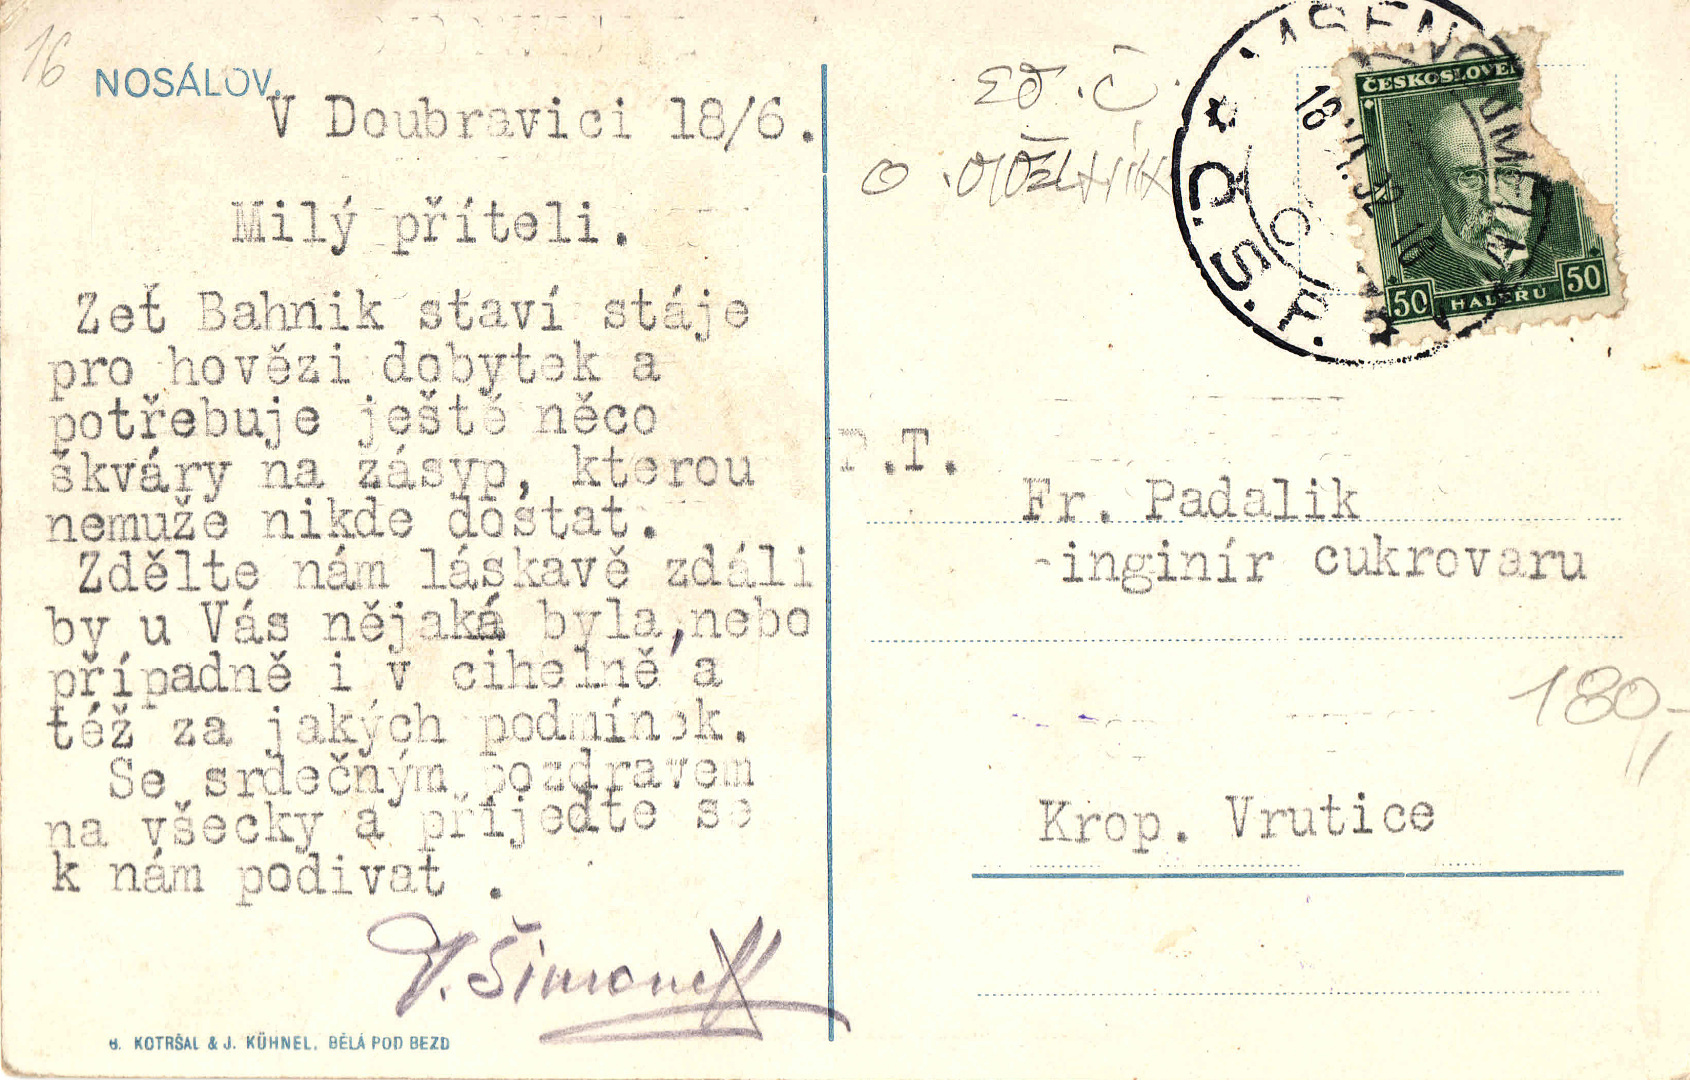 16
NOSÁLOV.
V Doubravici 18/6.
Milý příteli.
Zeť Bahnik staví stáje
pro hovězi dobytek a
potřebuje ještě něco
škváry na zásyp, kterou
nemuže nikde dostat.
Zdělte nám láskavě zdáli
by u Vás nějaká byla,nebo
případně i v cihelně a
též za jakých podmínek.
Se srdečným pozdravem
na všecky a přijeďte se
k nám podivat .
B. KOTRŠAL & J. KÜHNEL, BĚLÁ POD BEZD
ČESKOSLOVE
50 HALÉŘŮ 50
P.T.
Fr. Padalik
-inginír cukrovaru
180,-
Krop. Vrutice